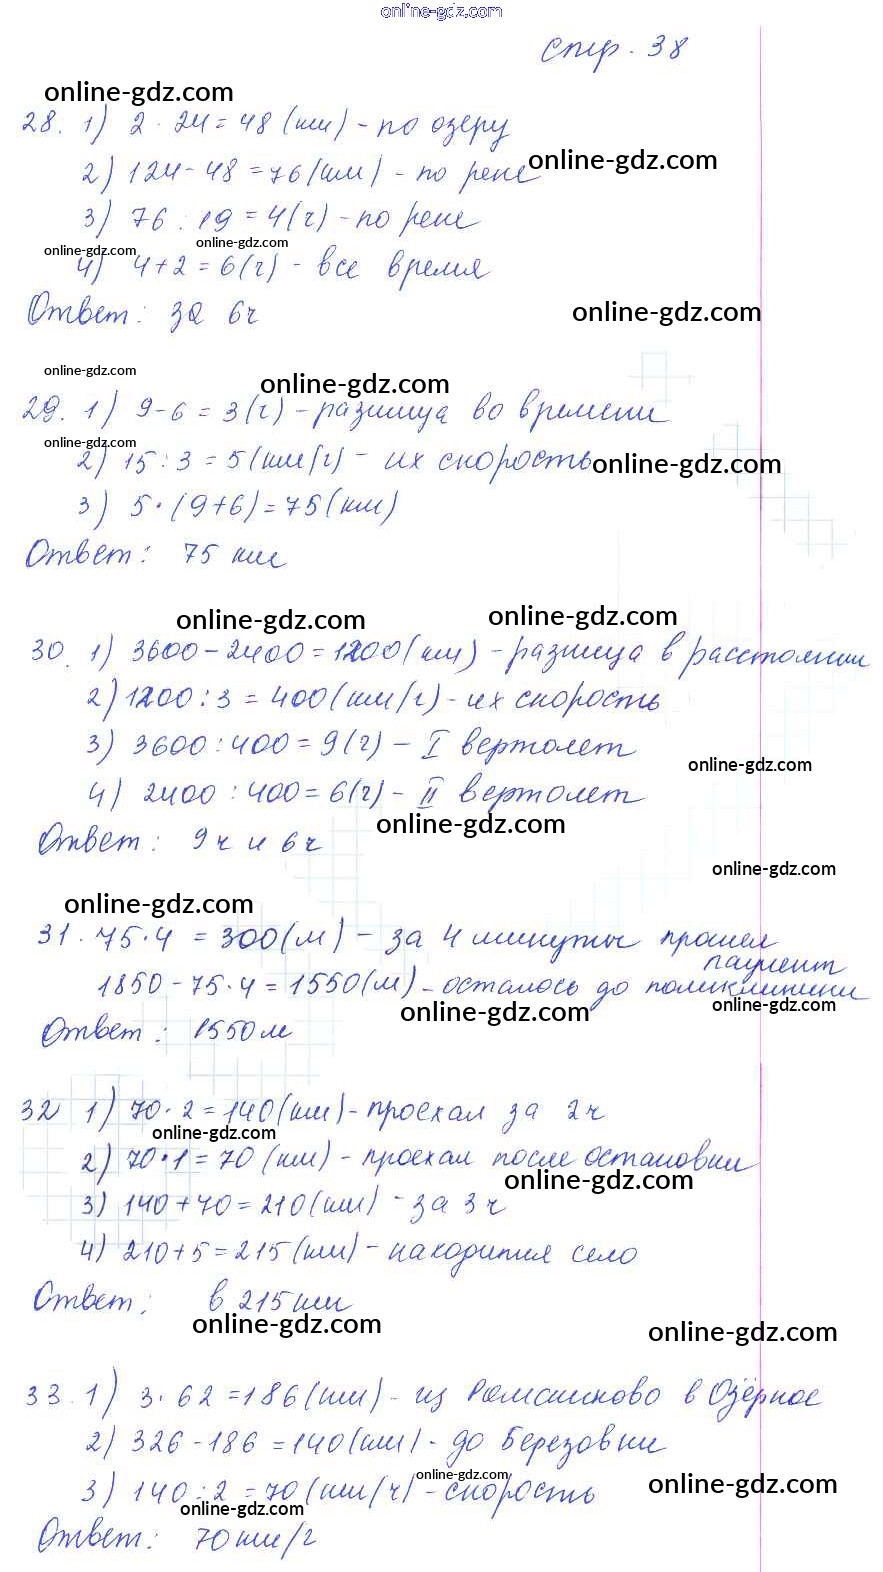 online-gdz.com
стр. 38
online-gdz.com
28. 1) 2 · 24 = 48 (км) - по озеру
online-gdz.com
2) 124 - 48 = 76 (км) - по реке
3) 76 : 19 = 4 (ч) - по реке
online-gdz.com online-gdz.com
4) 4 + 2 = 6 (ч) - все время
Ответ: за 6ч
online-gdz.com
online-gdz.com
online-gdz.com
29. 1) 9 - 6 = 3 (ч) - разница во времени
online-gdz.com
2) 15 : 3 = 5 (км/ч) - их скорость
online-gdz.com
3) 5 · (9 + 6) = 75 (км)
Ответ: 75 км
online-gdz.com online-gdz.com
30. 1) 3600 - 2400 = 1200 (км) - разница в расстоянии
2) 1200 : 3 = 400 (км/ч) - их скорость
3) 3600 : 400 = 9 (ч) - I вертолет
online-gdz.com
4) 2400 : 400 = 6 (ч) - II вертолет
online-gdz.com
Ответ: 9ч и 6ч
online-gdz.com
online-gdz.com
31. 75 · 4 = 300 (м) - за 4 минуты прошел
пациент
1850 - 75 · 4 = 1550 (м) - осталось до поликлиники
online-gdz.com online-gdz.com
Ответ: 1550 м
32 1) 70 · 2 = 140 (км) - проехал за 2ч
online-gdz.com
2) 70 · 1 = 70 (км) - проехал после остановки
online-gdz.com
3) 140 + 70 = 210 (км) - за 3ч
4) 210 + 5 = 215 (км) - находится село
Ответ: в 215 км
online-gdz.com online-gdz.com
33. 1) 3 · 62 = 186 (км) - из Ромашково в Озёрное
2) 326 - 186 = 140 (км) - до Березовки
online-gdz.com
3) 140 : 2 = 70 (км/ч) - скорость
online-gdz.com
online-gdz.com
Ответ: 70 км/ч